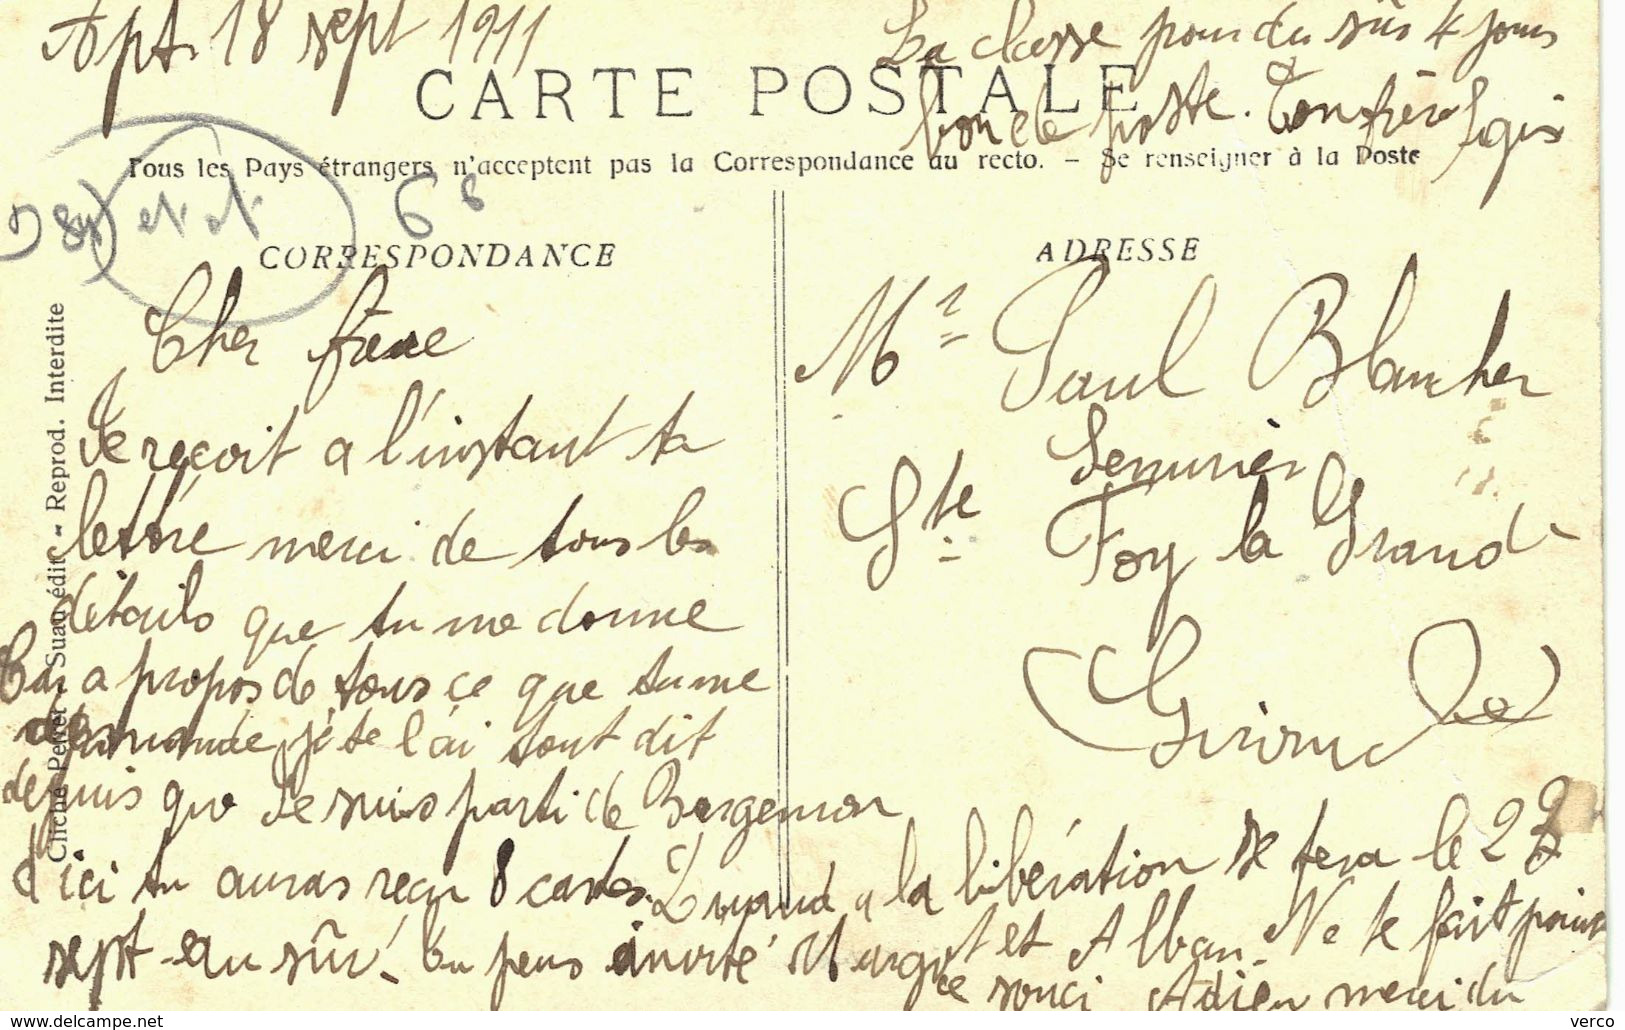 Apt. 18 sept 1911
CARTE POSTALE
Tous les Pays étrangers n'acceptent pas la Correspondance au recto. – Se renseigner à la Poste
CORRESPONDANCE
Cher frère
Je reçoit a l'instant ta
lettre merci de tous les
détails que tu me donne
Car a propos de tous ce que tu me
demande, je te l'ai tout dit
depuis que Je suis parti de Bargemon
d'ici tu auras reçu 8 cartes. Quand a la libération se fera le 22
sept. au sûr. Tu peus invité Margot et Alban. Ne te fait point
ce souci Adieu merci du
bon de poste. Ton frère
La classe pour du sûr 4 jours
ADRESSE
Mr Paul Blancher
Serrurier
Ste Foy la Grande
(Gironde)
Cliché Perret - Suau édit. - Reprod. Interdite
verco
www.delcampe.net